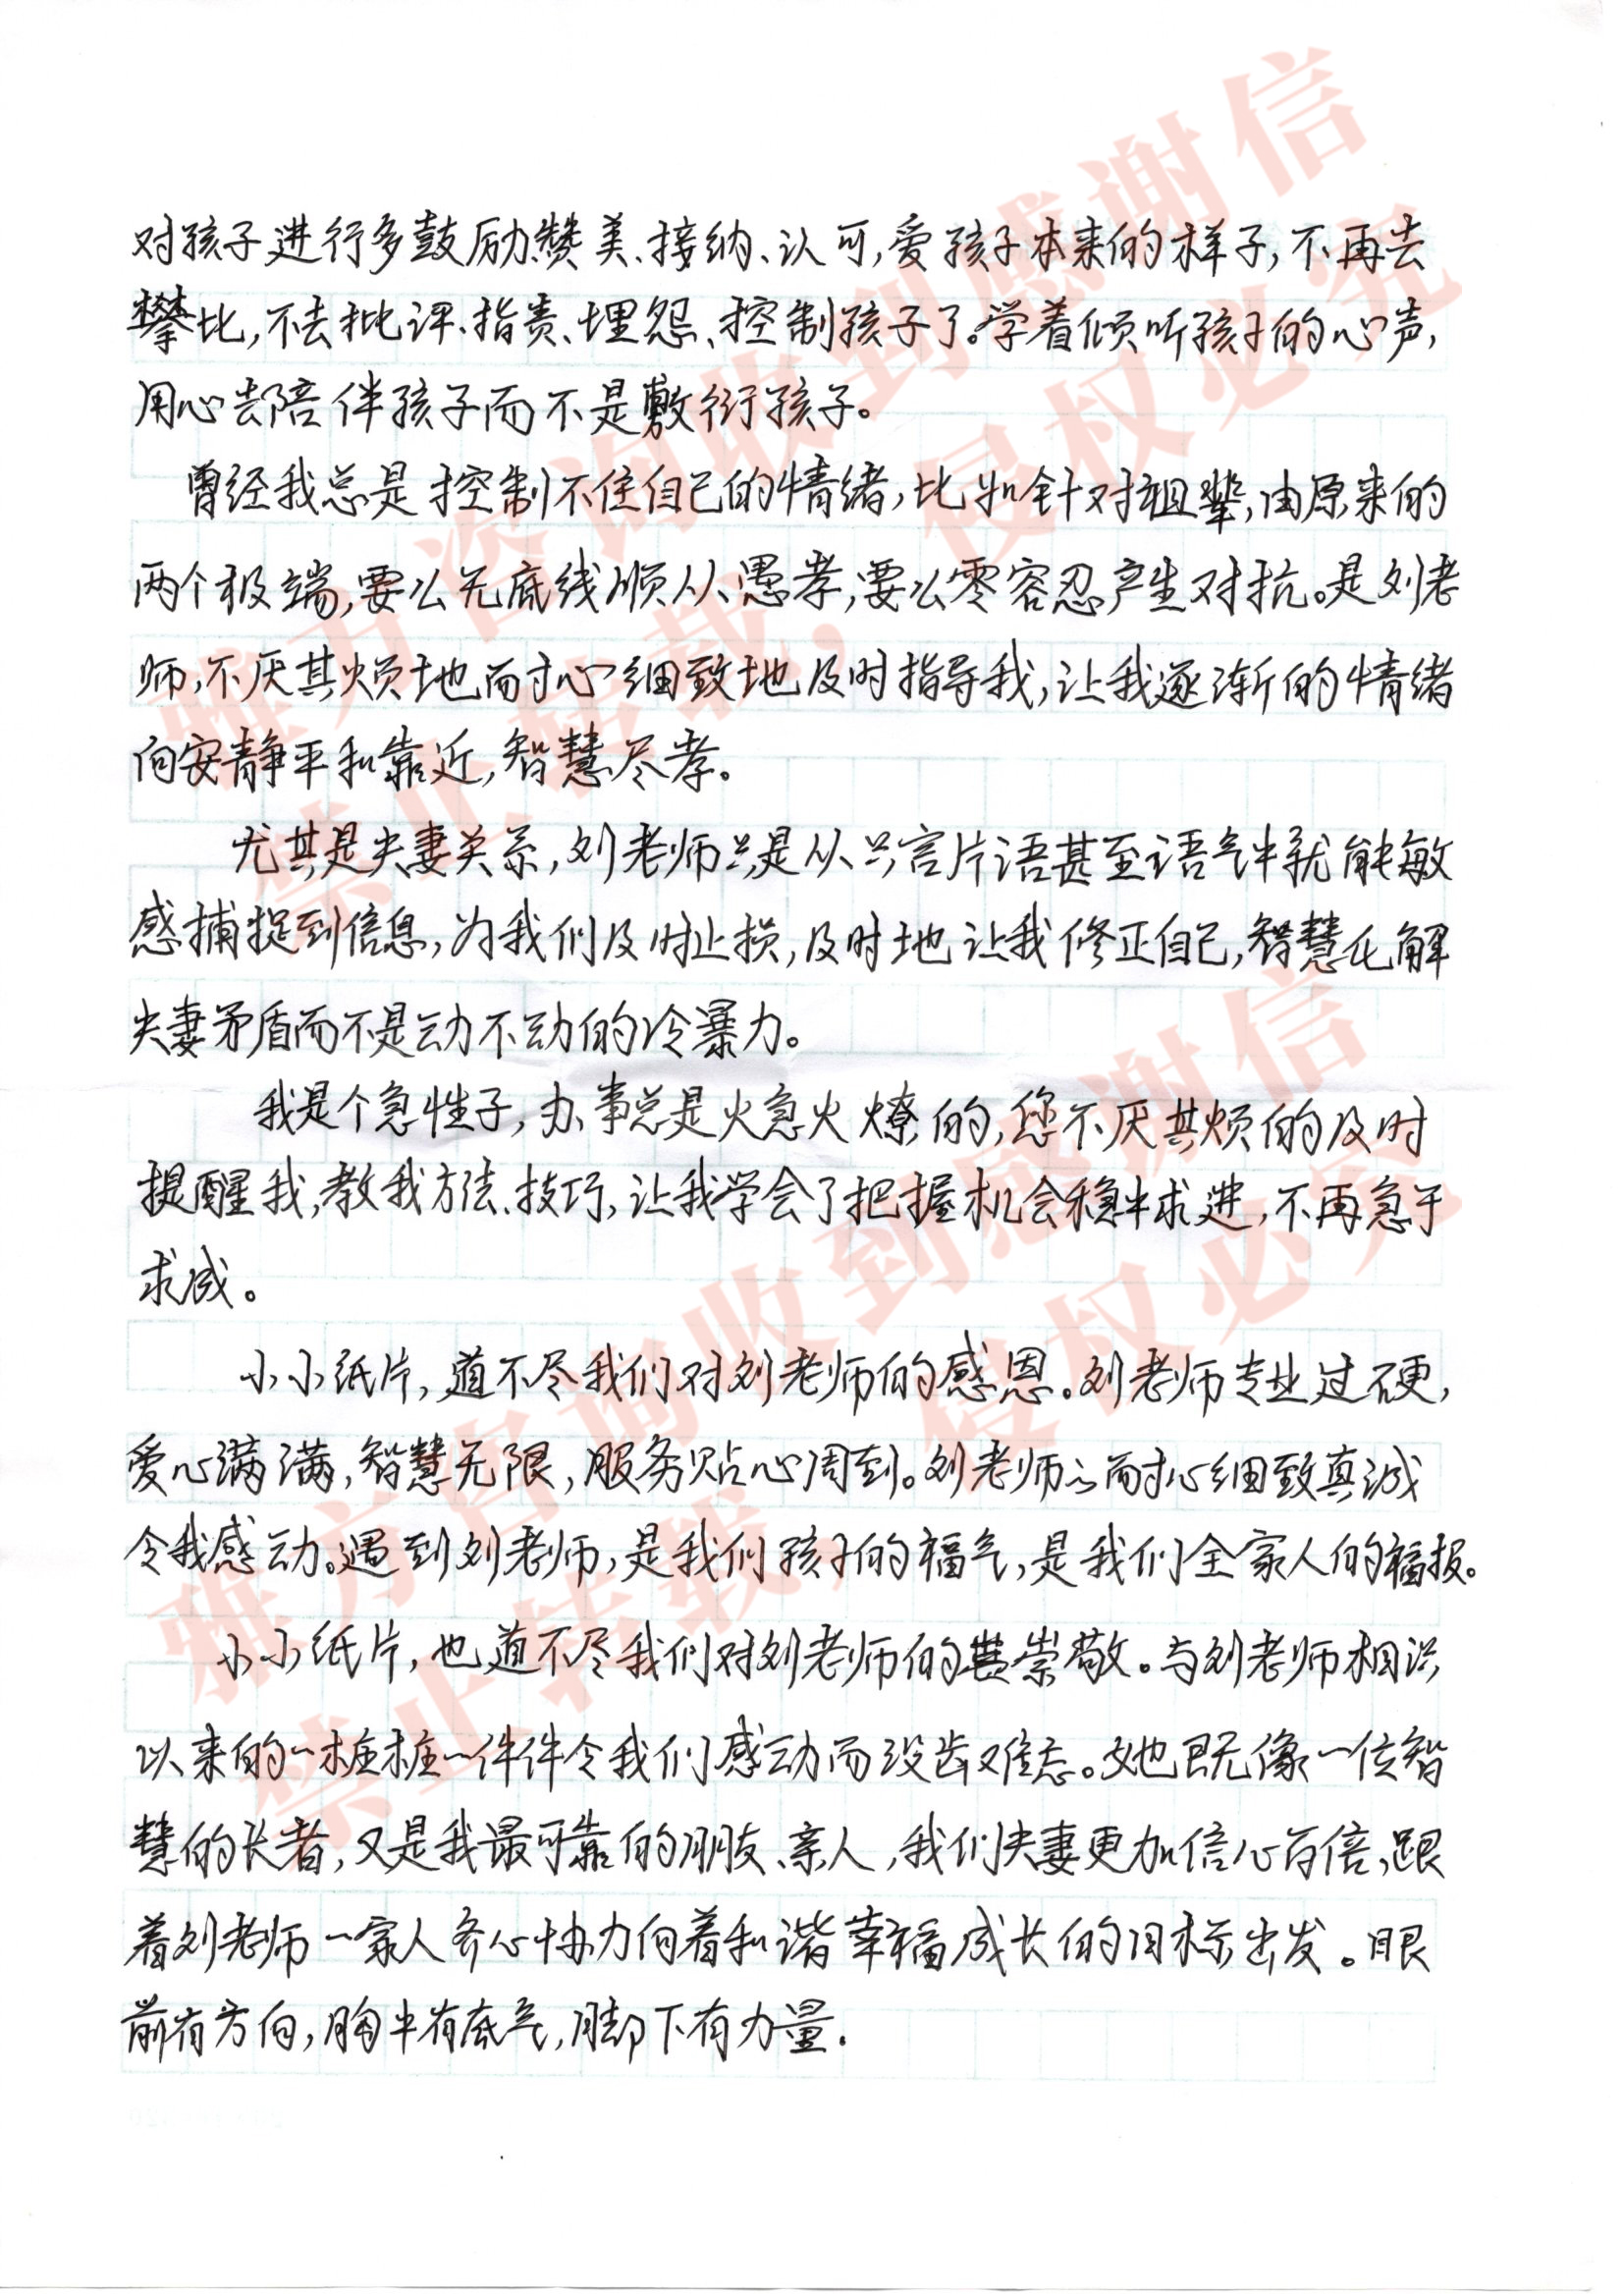 对孩子进行多鼓励、赞美、接纳、认可,爱孩子本来的样子,不再去
攀比,不去批评、指责、埋怨、控制孩子了。学着倾听孩子的心声,
用心去陪伴孩子而不是敷衍孩子。
曾经我总是控制不住自己的情绪,比如针对祖辈,由原来的
两个极端,要么无底线顺从、愚孝,要么零容忍产生对抗。是刘老
师,不厌其烦地而耐心细致地及时指导我,让我逐渐的情绪
向安静平和靠近,智慧尽孝。
尤其是夫妻关系,刘老师只是从只言片语甚至语气中就能敏
感捕捉到信息,为我们及时止损,及时地让我修正自己,智慧化解
夫妻矛盾而不是动不动的冷暴力。
我是个急性子,办事总是火急火燎的,您不厌其烦的及时
提醒我,教我方法、技巧,让我学会了把握机会稳中求进,不再急于
求成。
小小纸片,道不尽我们对刘老师的感恩。刘老师专业过硬,
爱心满满,智慧无限,服务贴心周到。刘老师之耐心细致真诚
令我感动。遇到刘老师,是我们孩子的福气,是我们全家人的福报。
小小纸片,也道不尽我们对刘老师的崇敬。与刘老师相识
以来的一桩桩一件件令我们感动而没齿难忘。她既像一位智
慧的长者,又是我最可靠的朋友、亲人,我们夫妻更加信心百倍,跟
着刘老师一家人齐心协力向着和谐幸福成长的目标出发。眼
前有方向,胸中有底气,脚下有力量.
雅方咨询收到感谢信
禁止转载,侵权必究
雅方咨询收到感谢信
禁止转载,侵权必究